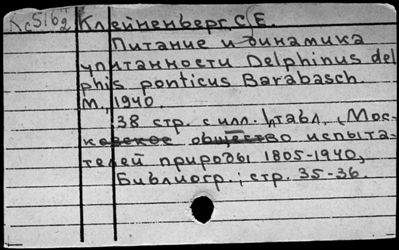 Кс5162 Клейненберг, С.Е.
Питание и динамика
упитанности Delphinus del
phis ponticus Barabasch.
М., 1940.
38 стр. с илл. 1, табл., (Мос-
ковское общество испыта-
телей природы 1805-1940,
Библиогр.; стр. 35-36.